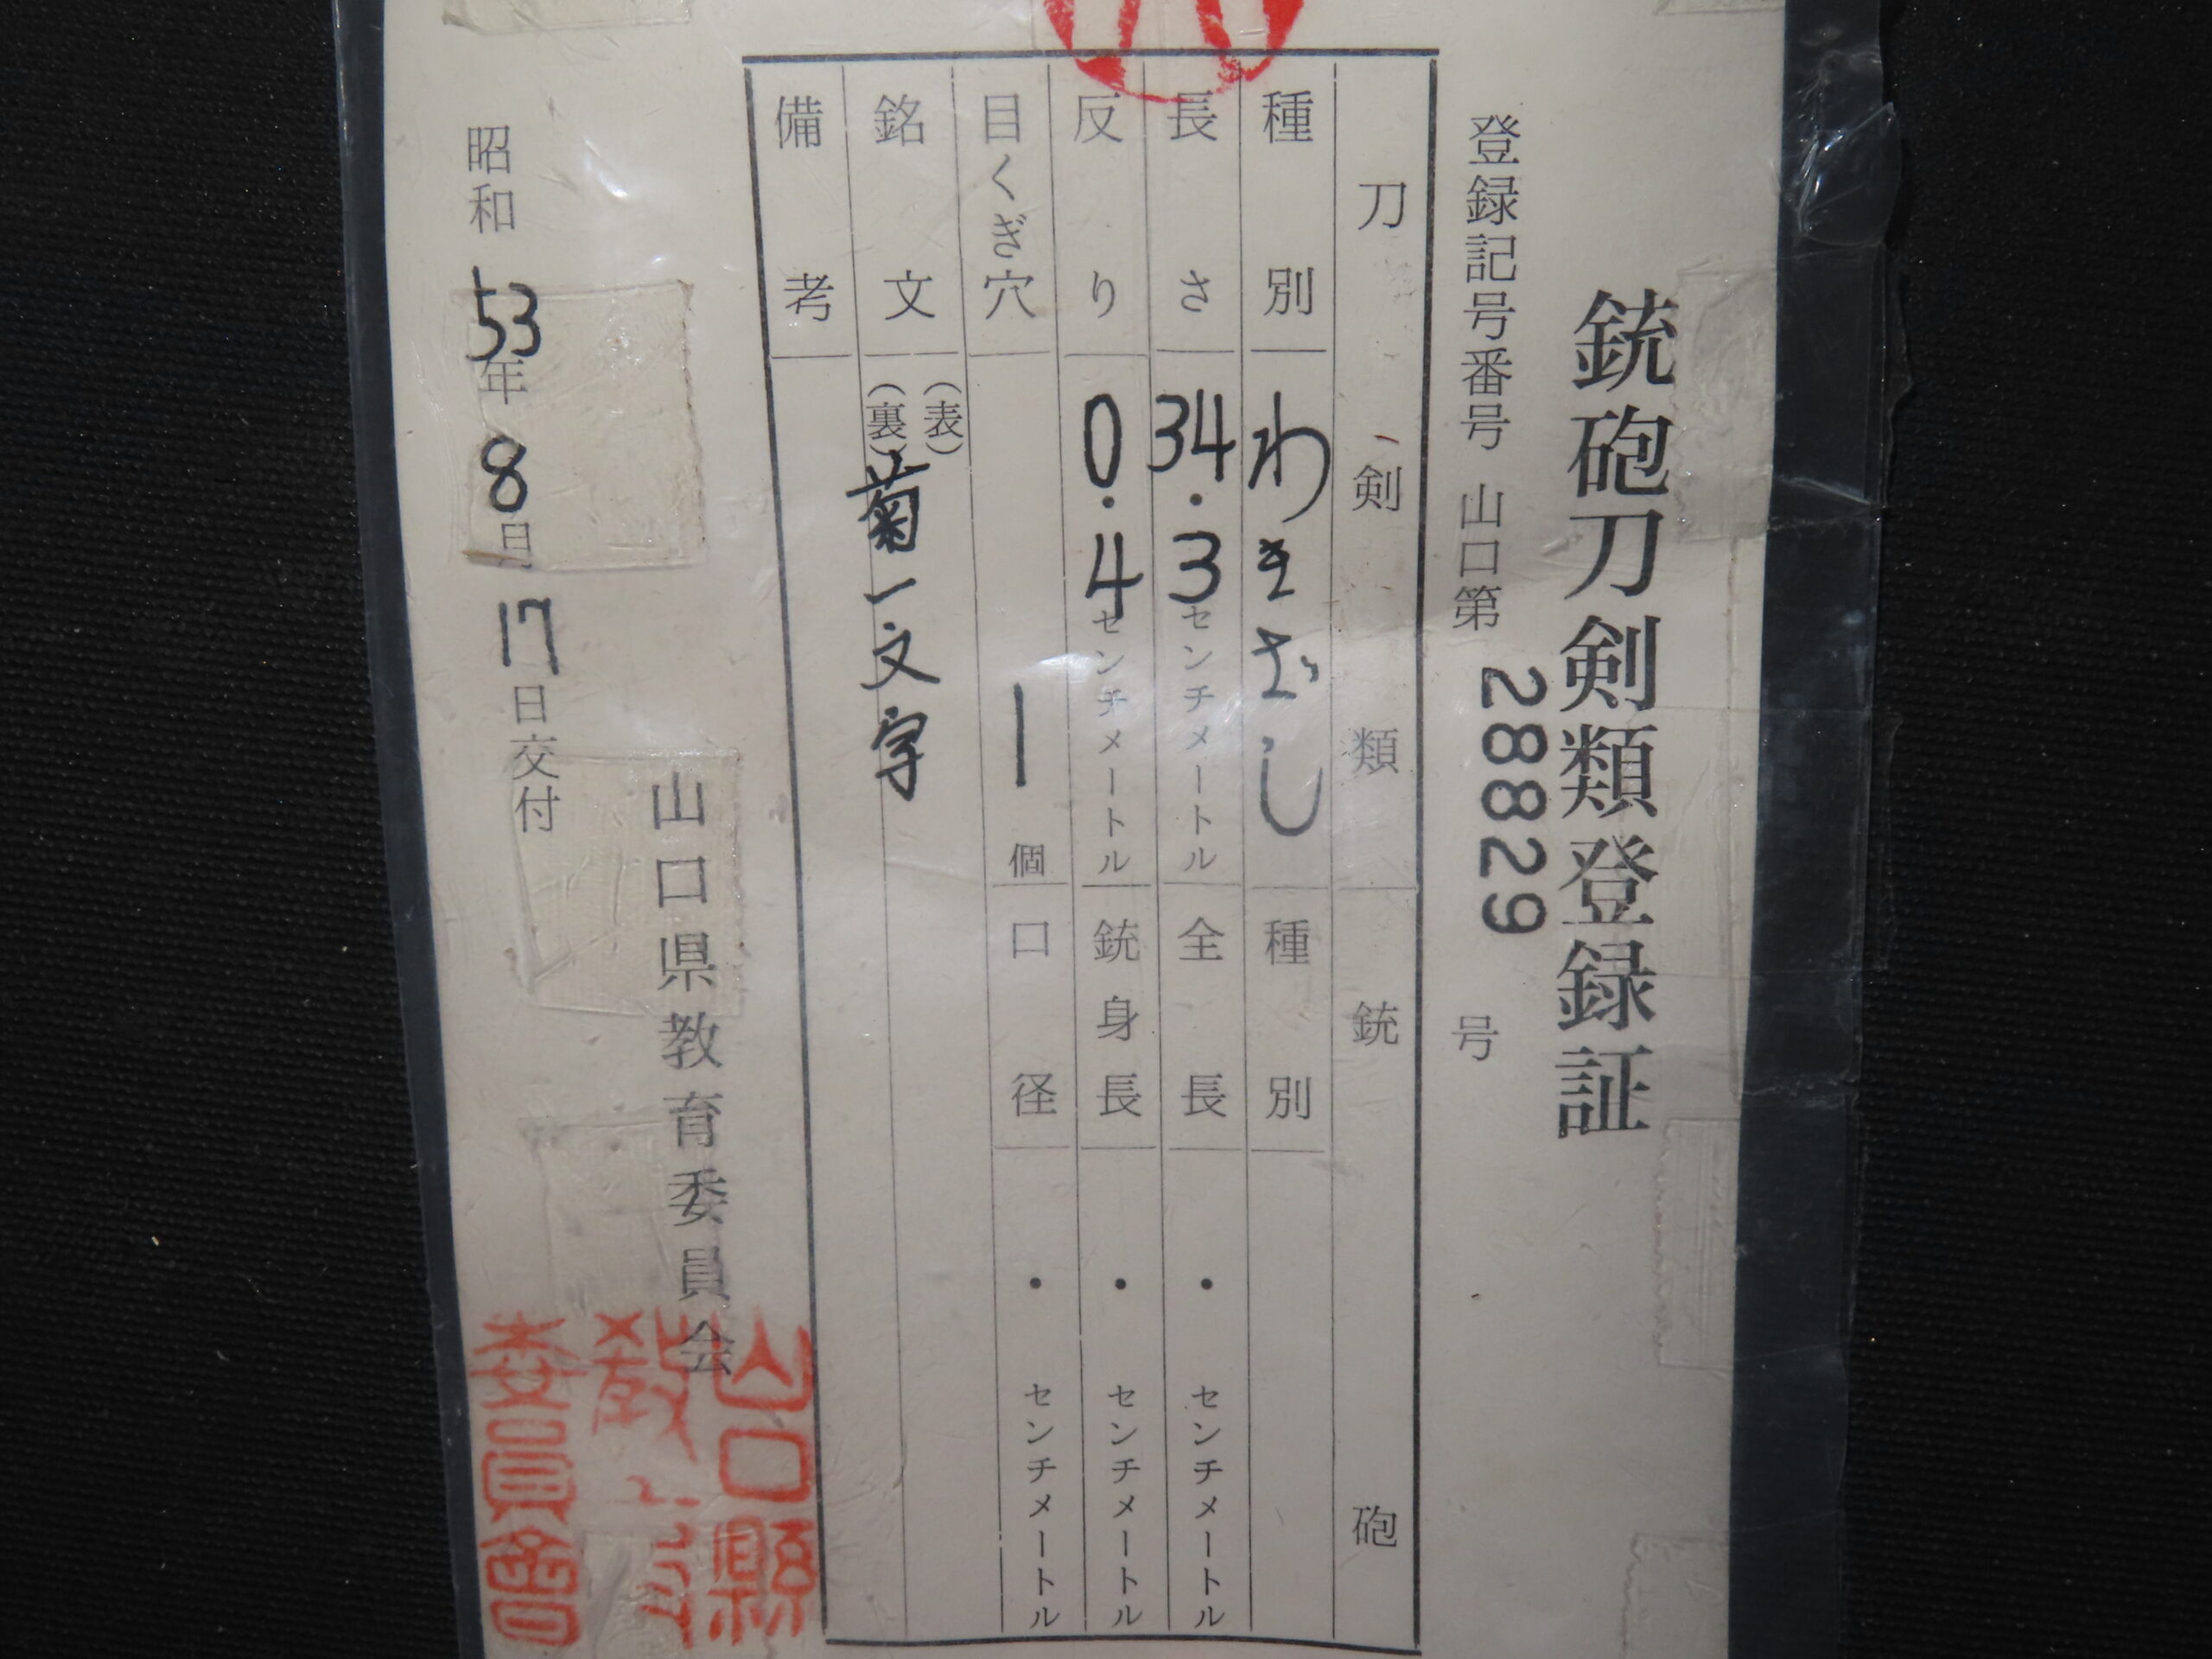 銃砲刀剣類登録証
登録記号番号 山口第 28829 号
刀剣類 銃砲
種別 わきざし 種別
長さ 34.3センチメートル 全長 ・ センチメートル
反り 0.4センチメートル 銃身長 ・ センチメートル
目くぎ穴 1個 口径 ・ センチメートル
銘文 (表)
(裏) 菊一文字
備考
山口県教育委員会
昭和53年8月17日交付
山口縣
教
委員會